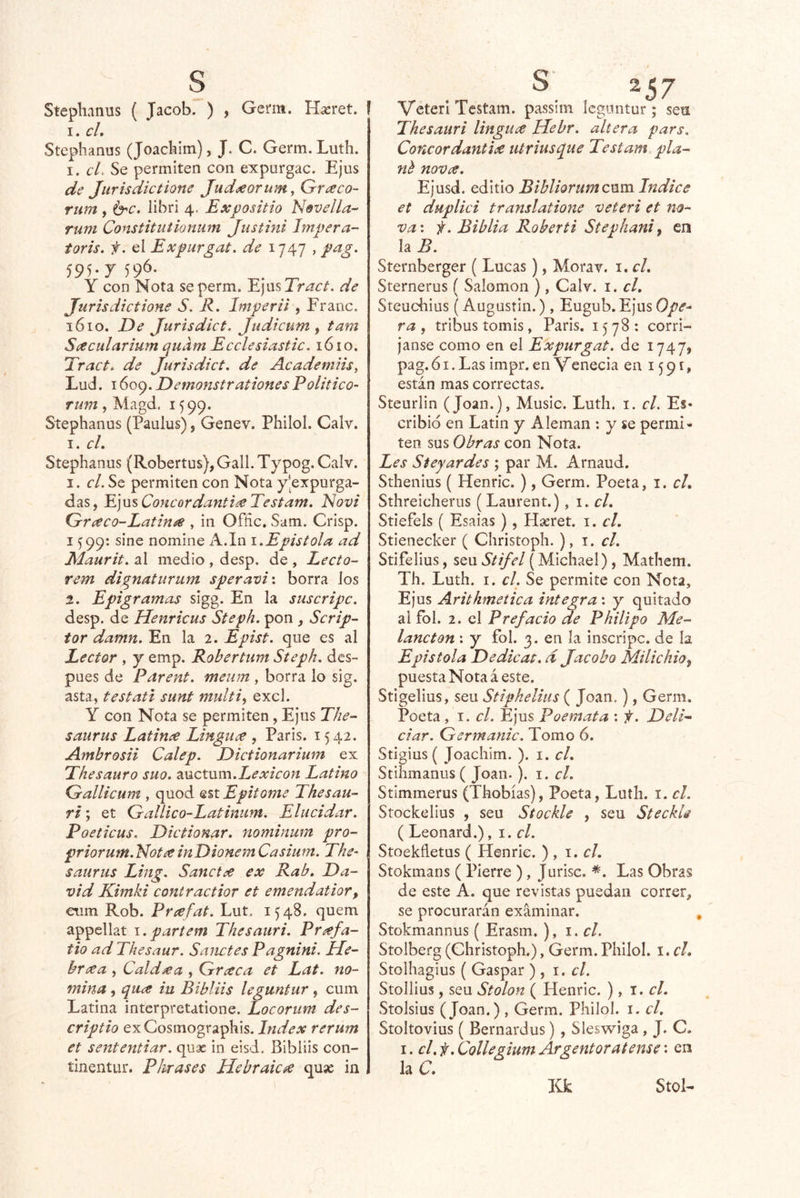 S
Stephanus ( Jacob. ) , Germ. Hæret.
1. cl.
Stephanus (Joachim), J. C. Germ. Luth.
1. cl. Se permiten con expurgac. Ejus
de Jurisdictione Judæorum, Græco-
rum, &c. libri 4. Expositio Novella-
rum Constitutionum Justini Impera-
toris. ℣. el Expurgat. de 1747 , pag.
595. y 596.
Y con Nota se perm. Ejus Tract. de
Jurisdictione S. R. Imperii, Franc.
1610. De Jurisdict. Judicum, tam
Sæcularium quàm Ecclesiastic. 1610.
Tract. de Jurisdict. de Academiis,
Lud. 1609. Demonstrationes Politico-
rum, Magd. 1599.
Stephanus (Paulus), Genev. Philol. Calv.
1. cl.
Stephanus (Robertus), Gall. Typog. Calv.
1. cl. Se permiten con Nota y expurga-
das, Ejus Concordantiæ Testam. Novi
Græco-Latinæ, in Offic. Sam. Crisp.
1599: sine nomine A. In 1. Epistola ad
Maurit. al medio, desp. de, Lecto-
rem dignaturum speravi: borra los
2. Epigramas sigg. En la suscripc.
desp. de Henricus Steph. pon , Scrip-
tor damn. En la 2. Epist. que es al
Lector , y emp. Robertum Steph. des-
pues de Parent. meum , borra lo sig.
asta, testati sunt multi, excl.
Y con Nota se permiten , Ejus The-
saurus Latinæ Linguæ , Paris. 1542.
Ambrosii Calep. Dictionarium ex
Thesauro suo. auctum. Lexicon Latino
Gallicum , quod est Epitome Thesau-
ri; et Gallico-Latinum. Elucidar.
Poeticus. Dictionar. nominum pro-
priorum. Notæ in Dionem Casium. The-
saurus Ling. Sanctæ ex Rab. Da-
vid Kimki contractior et emendatior,
cum Rob. Præfat. Lut. 1548. quem
appellat 1. partem Thesauri. Præfa-
tio ad Thesaur. Sanctes Pagnini. He-
bræa , Caldæa , Græca et Lat. no-
mina , quæ in Bibliis leguntur , cum
Latina interpretatione. Locorum des-
criptio ex Cosmographis. Index rerum
et sententiar. quæ in eisd. Bibliis con-
tinentur. Phrases Hebraicæ quæ in
S 257
Veteri Testam. passim leguntur ; seu
Thesauri linguæ Hebr. altera pars.
Concordantiæ utriusque Testam. pla-
nè novæ.
Ejusd. editio Bibliorum cum Indice
et duplici translatione veteri et no-
va: ℣. Biblia Roberti Stephani, en
la B.
Sternberger ( Lucas ), Morav. 1. cl.
Sternerus ( Salomon ) , Calv. 1. cl.
Steuchius ( Augustin. ) , Eugub. Ejus Ope-
ra , tribus tomis, Paris. 1578 : corri-
janse como en el Expurgat. de 1747,
pag. 61. Las impr. en Venecia en 1591,
están mas correctas.
Steurlin (Joan.), Music. Luth. 1. cl. Es-
cribió en Latin y Aleman : y se permi-
ten sus Obras con Nota.
Les Steyardes ; par M. Arnaud.
Sthenius ( Henric. ) , Germ. Poeta, 1. cl.
Sthreicherus ( Laurent.) , 1. cl.
Stiefels ( Esaias ) , Hæret. 1. cl.
Stienecker ( Christoph. ), 1. cl.
Stifelius, seu Stifel ( Michael) , Mathem.
Th. Luth. 1. cl. Se permite con Nota,
Ejus Arithmetica integra: y quitado
al fol. 2. el Prefacio de Philipo Me-
lancton : y fol. 3. en la inscripc. de la
Epistola Dedicat. á Jacobo Milichio,
puesta Nota á este.
Stigelius, seu Stiphelius ( Joan. ) , Germ.
Poeta , 1. cl. Ejus Poemata : ℣. Deli-
ciar. Germanic. Tomo 6.
Stigius ( Joachim. ). 1. cl.
Stihmanus ( Joan. ). 1. cl.
Stimmerus (Thobías), Poeta, Luth. 1. cl.
Stockelius , seu Stockle , seu Steckle
( Leonard.), 1. cl.
Stoekfletus ( Henric. ) , 1. cl.
Stokmans ( Pierre ) , Jurisc. *. Las Obras
de este A. que revistas puedan correr,
se procurarán exâminar.
Stokmannus ( Erasm. ), 1. cl.
Stolberg (Christoph.), Germ. Philol. 1. cl.
Stolhagius ( Gaspar ) , 1. cl.
Stollius , seu Stolon ( Henric. ) , 1. cl.
Stolsius (Joan.) , Germ. Philol. 1. cl.
Stoltovius ( Bernardus ) , Sleswiga , J. C.
1. cl. ℣. Collegium Argentoratense: en
la C.
Kk Stol-